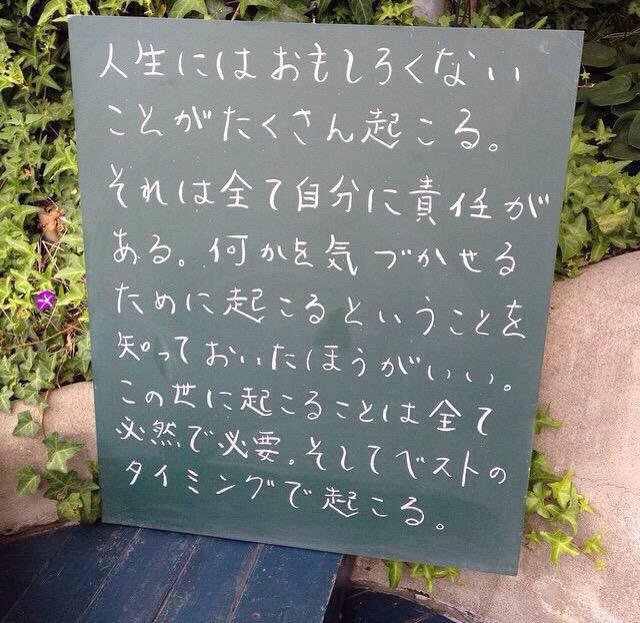 人生にはおもしろくない
ことがたくさん起こる。
それは全て自分に責任が
ある。何かを気づかせる
ために起こるということを
知っておいたほうがいい。
この世に起こることは全て
必然で必要。そしてベストの
タイミングで起こる。